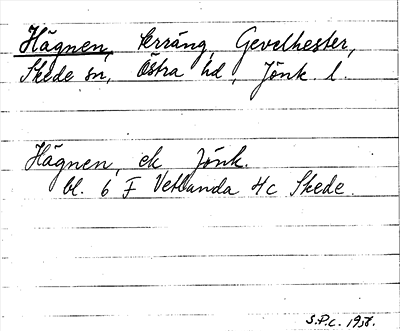 Hägnen, terräng, Gevelhester,
Skede sn, Östra hd, Jönk. l.
Hägnen, ek Jönk.
bl. 6 F Vetlanda 4c Skede.
S.P.C. 1938.